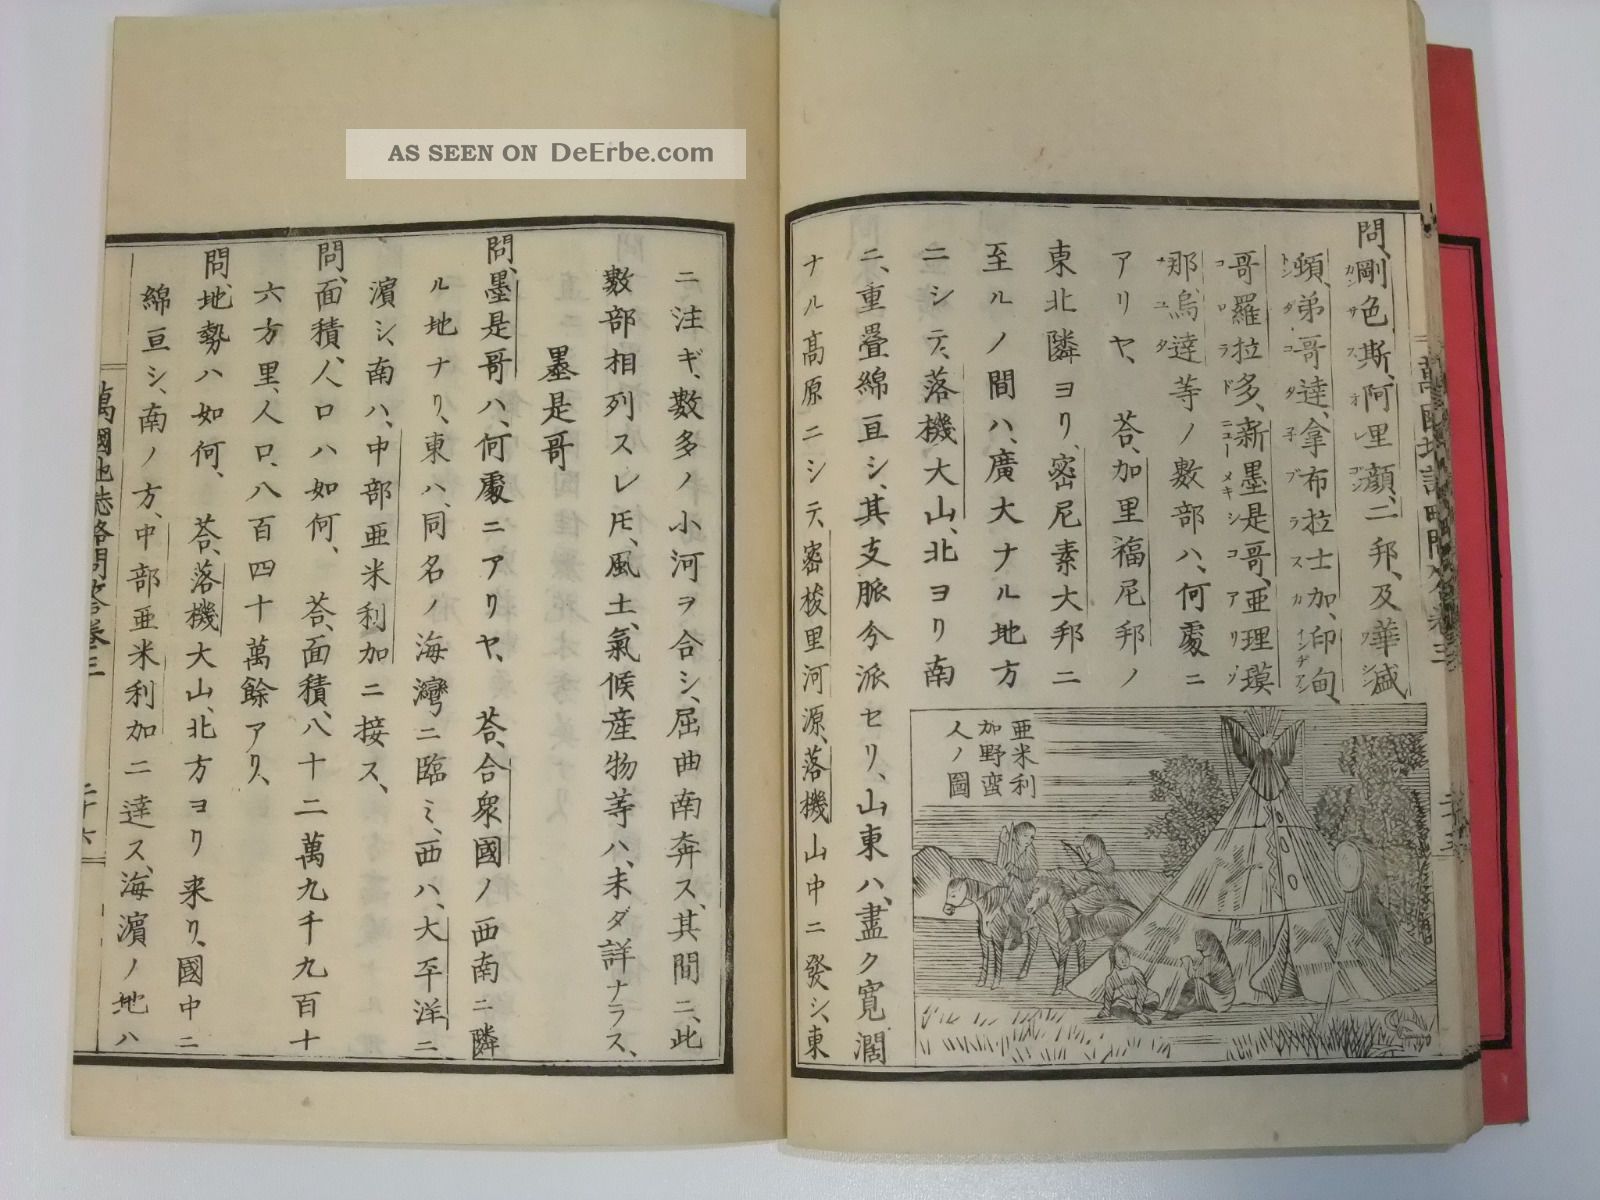 AS SEEN ON DeErbe.com
問、剛色斯、阿里顔、二邦、及華盛
頓、弟哥達、拿布拉士加、印甸、
哥羅拉多、新墨是哥、亜理漠
那、烏達等ノ數部ハ、何處ニ
アリヤ、 荅、加里福尼邦ノ
東北隣ヨリ、密尼素大邦ニ
至ルノ間ハ、廣大ナル地方
ニシテ、落機大山、北ヨリ南
ニ、重畳綿亘シ、其支脈分派セリ、山東ハ、盡ク寛濶
ナル高原ニシテ、密梭里河源、落機山中ニ發シ、東
亜米利
加野蛮
人ノ圖
ニ注ギ、數多ノ小河ヲ合シ、屈曲南奔ス、其間ニ、此
數部相列スレ𪜈、風土、氣候、産物等ハ、未ダ詳ナラス、
墨是哥
問、墨是哥ハ、何處ニアリヤ、 荅、合衆國ノ西南ニ隣
ル地ナリ、東ハ、同名ノ海灣ニ臨ミ、西ハ、大平洋ニ
濱シ、南ハ、中部亜米利加ニ接ス、
問、面積、人口ハ如何、 荅、面積、八十二萬九千九百十
六方里、人口、八百四十萬餘アリ、
問、地勢ハ如何、 荅、落機大山、北方ヨリ来リ、國中ニ
綿亘シ、南ノ方、中部亜米利加ニ達ス、海濱ノ地ハ
萬國地誌略問答巻三
二十六